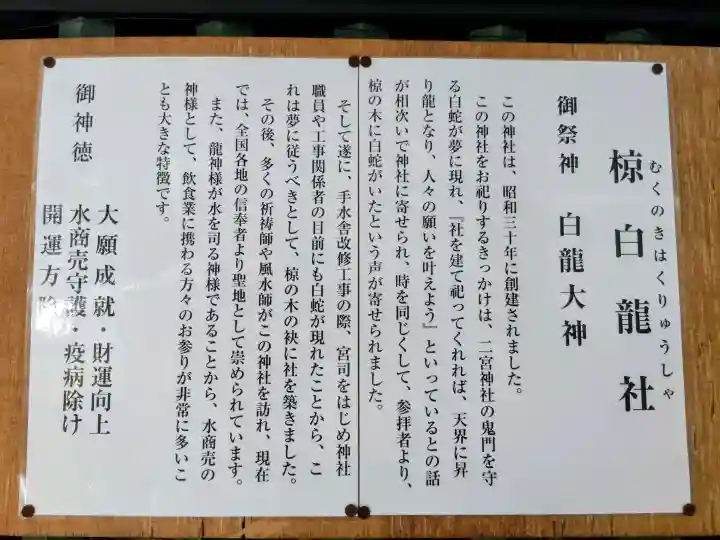 椋白龍社
むくのきはくりゅうしゃ
御祭神　白龍大神
この神社は、昭和三十年に創建されました。
この神社をお祀りするきっかけは、二宮神社の鬼門を守
る白蛇が夢に現れ、『社を建て祀ってくれれば、天界に昇
り龍となり、人々の願いを叶えよう』といっているとの話
が相次いで神社に寄せられ、時を同じくして、参拝者より、
椋の木に白蛇がいたという声が寄せられました。
そして遂に、手水舎改修工事の際、宮司をはじめ神社
職員や工事関係者の目前にも白蛇が現れたことから、こ
れは夢に従うべきとして、椋の木の袂に社を築きました。
その後、多くの祈祷師や風水師がこの神社を訪れ、現在
では、全国各地の信奉者より聖地として崇められています。
また、龍神様が水を司る神様であることから、水商売の
神様として、飲食業に携わる方々のお参りが非常に多いこ
とも大きな特徴です。
御神徳
大願成就・財運向上
水商売守護・疫病除け
開運方除